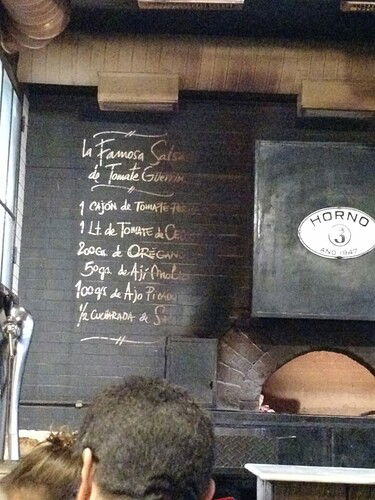 La Famosa Salsa
de Tomate
1 CAJÓN de TOMATE
1 Lt. de TOMATE de
200Grs. de ORÉGANO
50grs. de Ají
100grs de Ajo
1/2 CUCHARADA de
HORNO
3
AÑO 1947